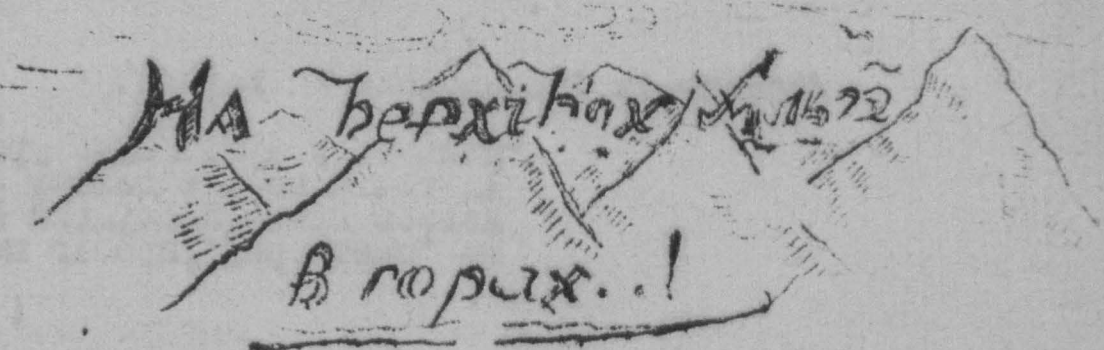 На верхівах
В горах..!